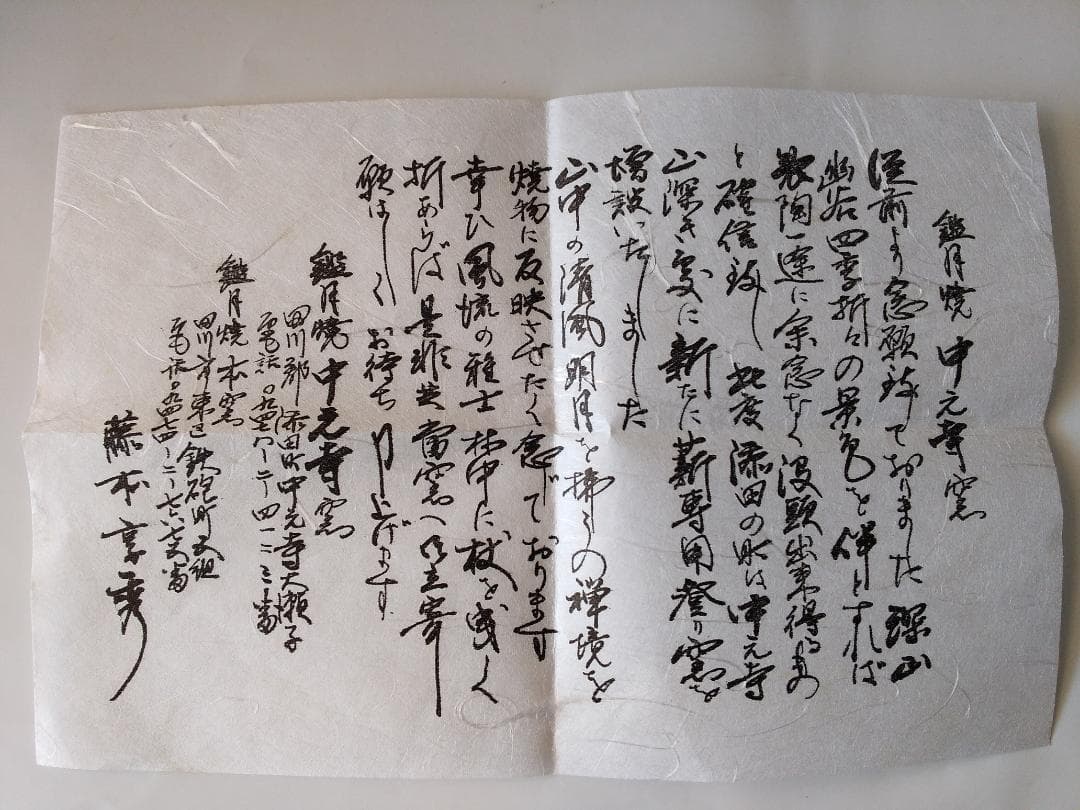 鑑月焼 中元寺窯
従前より念願致ておりました 深山
幽谷四季折々の景色を伴とすれば
製陶一途に余念なく没頭出来得るもの
と確信致し 此度 添田の町は中元寺
山深き処に新たに薪専用登り窯を
増設いたしました
山中の清風明月を拂うの禅境を
焼物に反映させたく念じております
幸ひ風流の雅士 林中に杖を曳く
折あらば 是非共 当窯へ御立寄
願はしく お待ち申上げます
鑑月焼 中元寺窯
田川郡添田町中元寺大瀬子
電話〇九四七八-二-四一二三番
鑑月焼本窯
田川市東区鉄砲町五組
電話〇九四七四-二-七六六番
藤本享秀